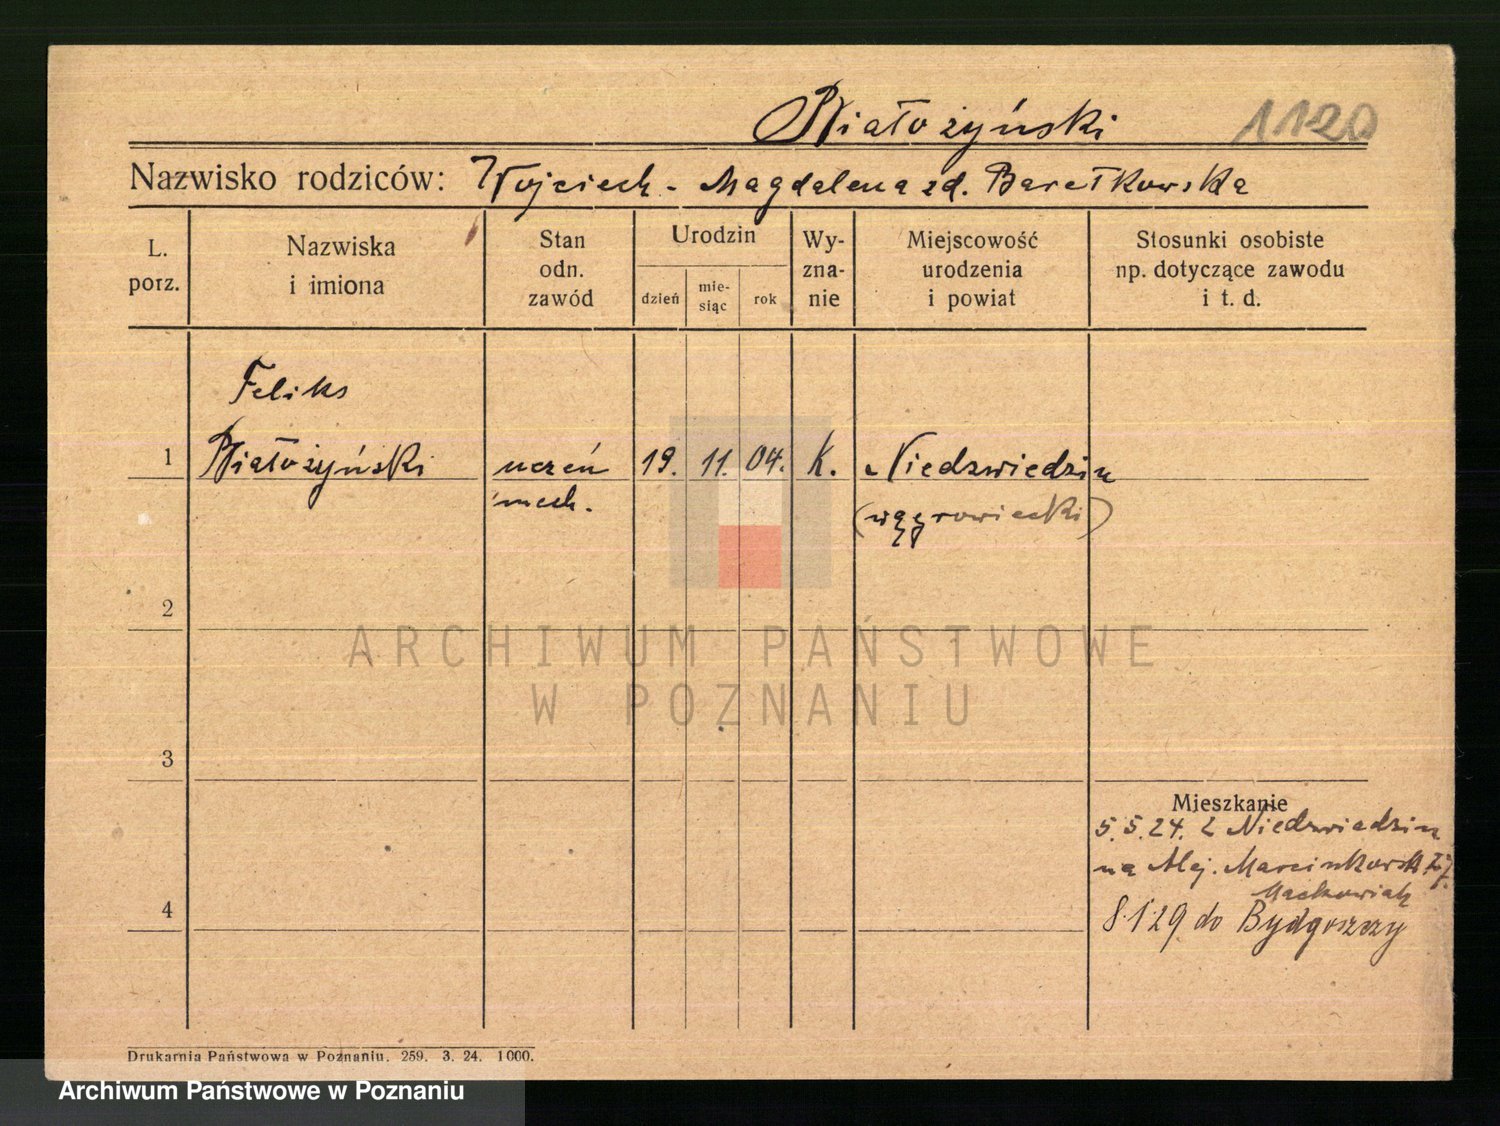 Białożyński 1120
Nazwisko rodziców: Wojciech - Magdalena zd. Barełkowska
L. porz.
Nazwiska i imiona
Stan odn. zawód
Urodzin
dzień
mie-siąc
rok
Wy-zna-nie
Miejscowość urodzenia i powiat
Stosunki osobiste np. dotyczące zawodu i t. d.
Feliks
1 Białożyński uczeń 19. 11. 04. K. Niedzwiedzin
mech. (wągrowiecki)
2
ARCHIWUM PAŃSTWOWE
W POZNANIU
3
Mieszkanie
5.5.24. z Niedzwiedzin
na Alej. Marcinkowsk
Maćkowiak
4 8.1.29 do Bydgoszczy
Drukarnia Państwowa w Poznaniu. 259. 3. 24. 1000.
Archiwum Państwowe w Poznaniu